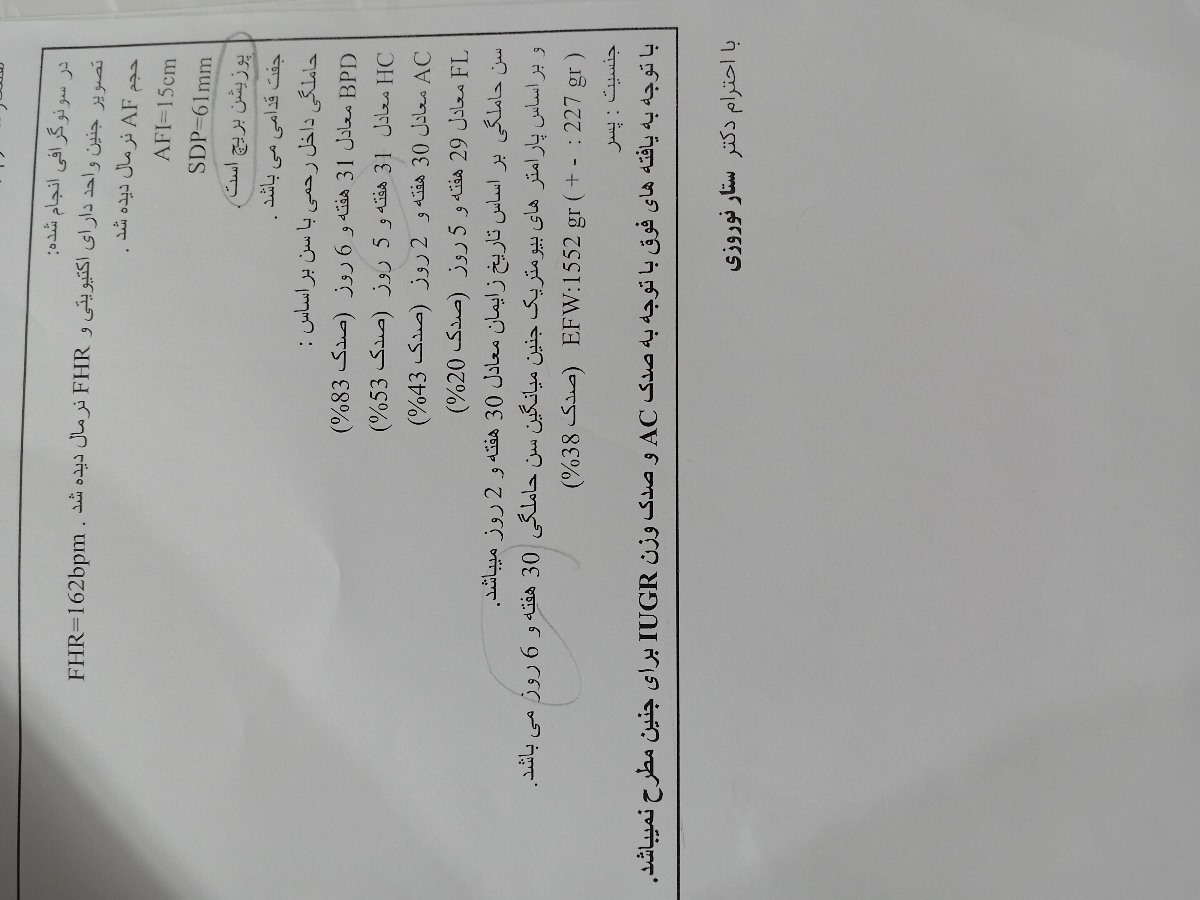 در سونوگرافی انجام شده:
تصویر جنین واحد دارای اکتیویتی و FHR نرمال دیده شد . FHR=162bpm
حجم AF نرمال دیده شد .
AFI=15cm
SDP=61mm
پوزیشن بریچ است .
جفت قدامی می باشد .
حاملگی داخل رحمی با سن بر اساس :
BPD معادل 31 هفته و 6 روز (صدک 83%)
HC معادل 31 هفته و 5 روز (صدک 53%)
AC معادل 30 هفته و 2 روز (صدک 43%)
FL معادل 29 هفته و 5 روز (صدک 20%)
سن حاملگی بر اساس تاریخ زایمان معادل 30 هفته و 2 روز میباشد.
و بر اساس پارامتر های بیومتریک جنین میانگین سن حاملگی 30 هفته و 6 روز می باشد.
EFW:1552 gr ( + - : 227 gr ) (صدک 38%)
جنسیت : پسر
با توجه به یافته های فوق با توجه به صدک AC و صدک وزن IUGR برای جنین مطرح نمیباشد.
با احترام دکتر ستار نوروزی